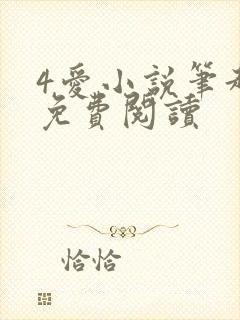 4.愛小說筆
免費閱讀
恰恰